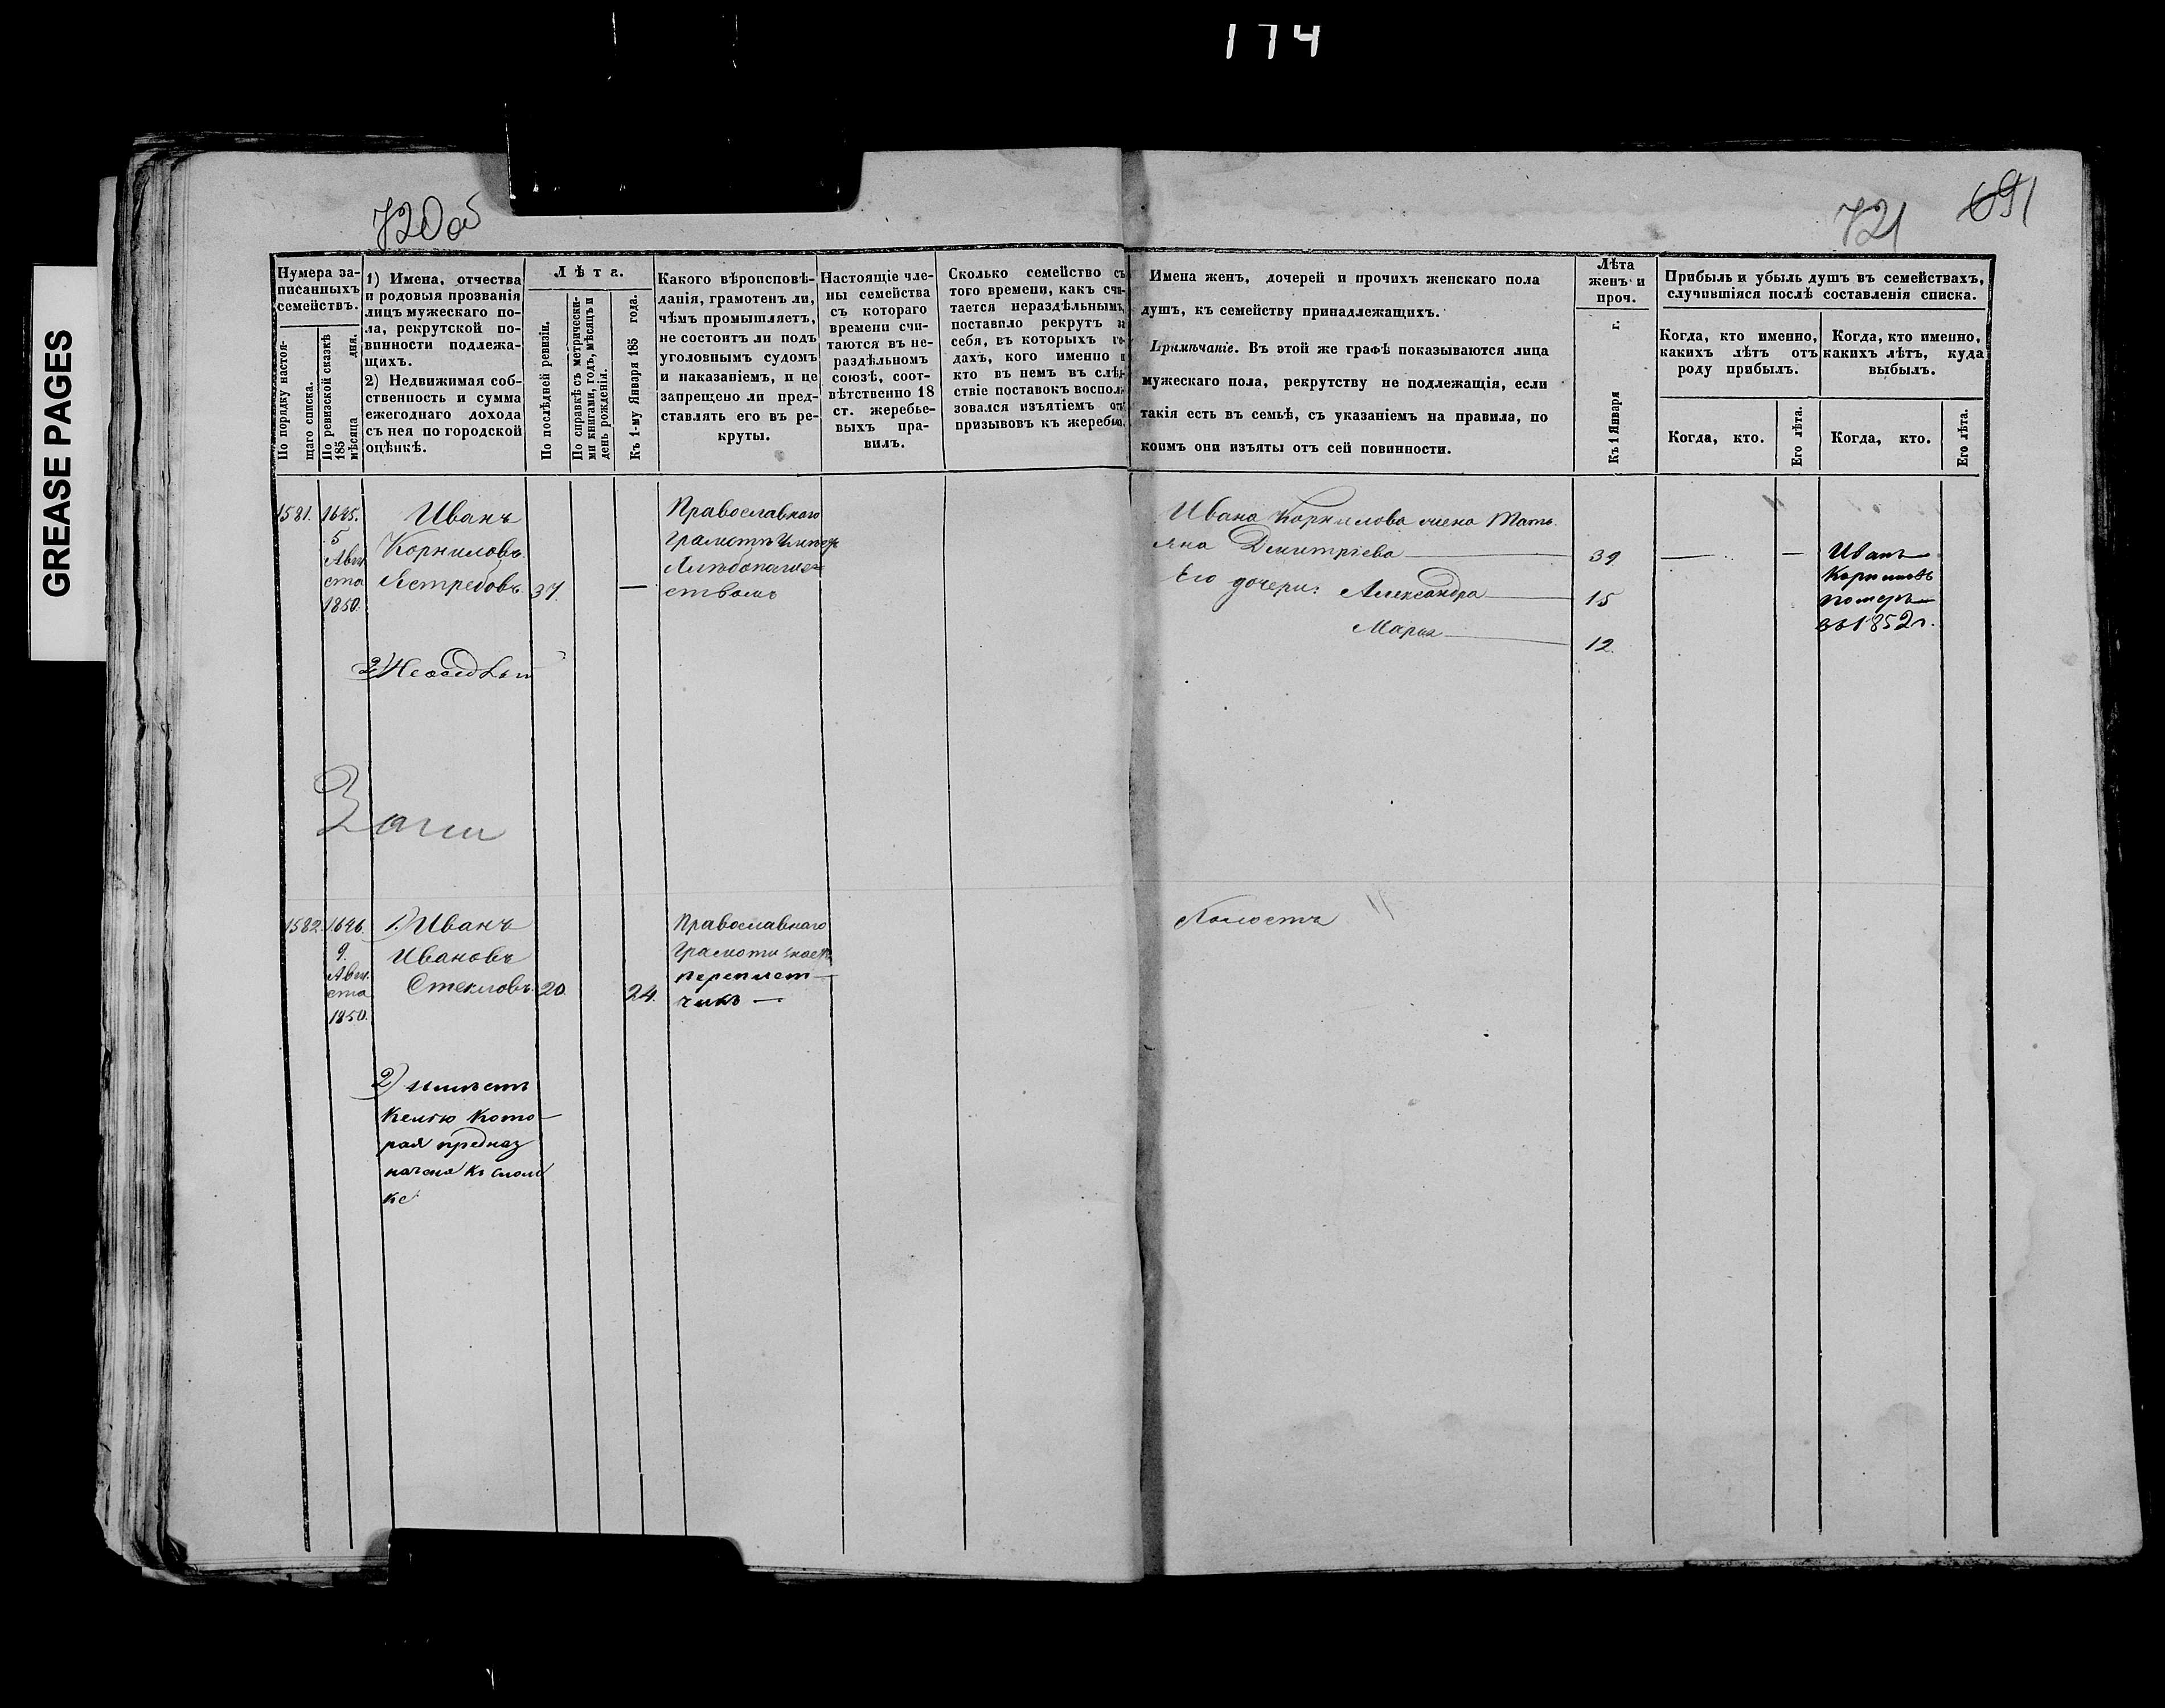 174
GREASE PAGES
720об
721
691
Нумера за-
писанныхъ
семействъ.
По порядку настоя-
щаго списка.
По ревизской сказкѣ
185
мѣсяца дня.
1) Имена, отчества
и родовыя прозванія
лицъ мужескаго по-
ла, рекрутской по-
винности подлежа-
щихъ.
2) Недвижимая соб-
ственность и сумма
ежегоднаго дохода
съ нея по городской
оцѣнкѣ.
Лѣта.
По послѣдней ревизіи.
По справкѣ съ метрически-
ми книгами, годъ, мѣсяцъ и
день рожденія.
Къ 1-му Января 185 года.
Какого вѣроисповѣ-
данія, грамотенъ ли,
чѣмъ промышляетъ,
не состоитъ ли подъ
уголовнымъ судомъ
и наказаніемъ, и не
запрещено ли пред-
ставлять его въ ре-
круты.
Настоящіе чле-
ны семейства
съ котораго
времени счи-
таются въ не-
раздѣльномъ
союзѣ, соот-
вѣтственно 18
ст. жеребье-
выхъ пра-
вилъ.
Сколько семейство съ
того времени, какъ счи-
тается нераздѣльнымъ,
поставило рекрутъ за
себя, въ которыхъ го-
дахъ, кого именно и
кто въ немъ въ слѣд-
ствіе поставокъ воспол-
зовался изъятіемъ отъ
призывовъ къ жеребью.
Имена женъ, дочерей и прочихъ женскаго пола
душъ, къ семейству принадлежащихъ.
Примѣчаніе. Въ этой же графѣ показываются лица
мужескаго пола, рекрутству не подлежащія, если
такія есть въ семьѣ, съ указаніемъ на правила, по
коимъ они изъяты отъ сей повинности.
Лѣта
женъ и
проч.
Къ 1 Января г.
Прибыль и убыль душъ въ семействахъ,
случившіяся послѣ составленія списка.
Когда, кто именно,
какихъ лѣтъ отъ
роду прибылъ.
Когда, кто именно,
какихъ лѣтъ, куда
выбылъ.
Когда, кто.
Его лѣта.
Когда, кто.
Его лѣта.
1581. 1645.
5
Авгу
ста
1850.
Иванъ
Корниловъ
Ястребовъ 37. —
2) Неосѣдлый
Православнаго
ствомъ
Ивана Корнилова жена Тать
яна Дмитріева 39
Его дочери: Александра 15
Марья 12.
— —
Иванъ
Корниловъ
померъ
въ 1852 г.
1582. 1646.
9.
Авгу
ста
1850.
1) Иванъ
Ивановъ
Стекловъ 20. 24.
2) имѣетъ
келію кото
рая предназ
начена къ слом
ке
Православнаго
переплет
чикъ —
Холостъ